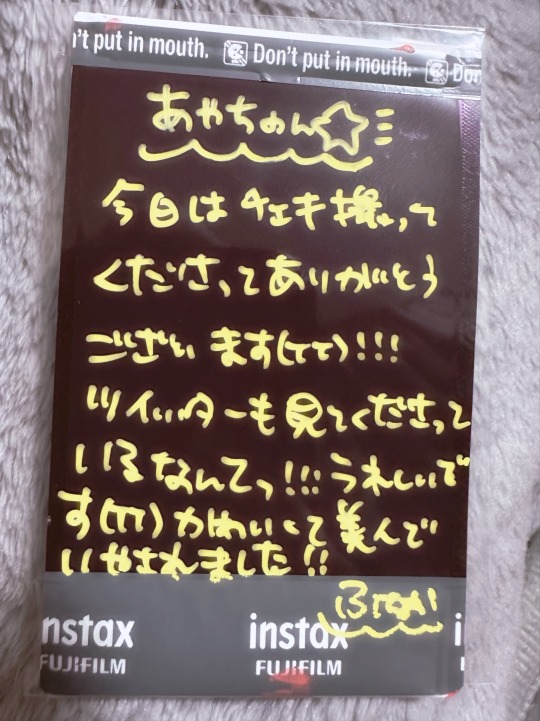 n't put in mouth. Don't put in mouth. Don
あやちゃん☆
今日はチェキ撮って
くださってありがとう
ございます(TT)!!!
ツイッターも見てくださって
いるなんてっ!!!うれしいで
す(TT)かわいくて美人で
いやされました!!
nstax instax i
FUJIFILM FUJIFILM